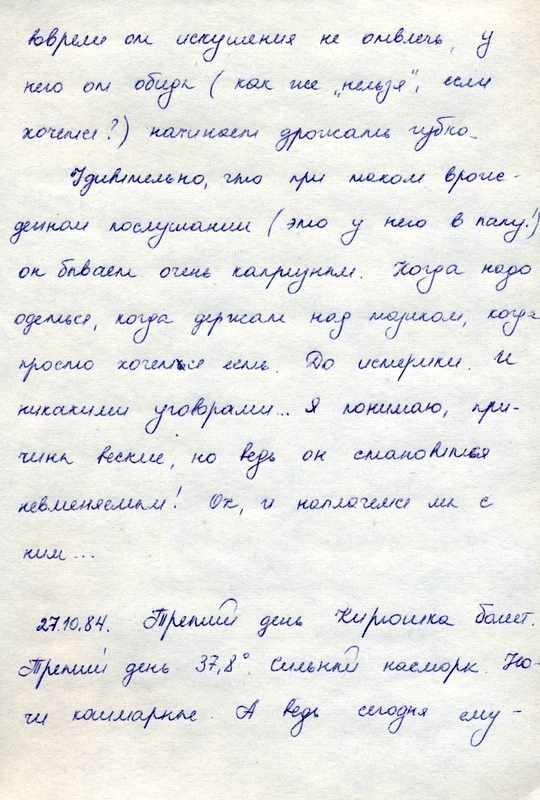 вовремя от искушения не отвлечь, у
него от обиды (как же „нельзя", если
хочется?) начинает дрожать губка.
Удивительно, что при таком врож-
денном послушании (это у него в папу!)
он бывает очень капризным. Когда надо
одеться, когда держат над тазиком, когда
просто хочется есть. До истерики. И
никакими уговорами... Я понимаю, при-
чины веские, но ведь он становится
невменяемым! Ох, и наплачемся мы с
ним...
27.10.84. Третий день Кирюшка болеет.
Третий день 37,8°. Сильный насморк. Но-
чи кошмарные. А ведь сегодня ему -